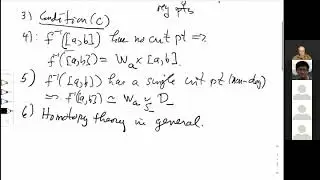 reg pts
3) Condition (C)
4): f⁻¹([a,b]) have no crit pt =>
f⁻¹([a,b]) = Wa x [a,b].
5) f⁻¹([a,b]) has a single crit pt (non-deg)
=> f⁻¹([a,b]) ≃ Wa ∪ D_
S_
6) Homotopy theory in general.